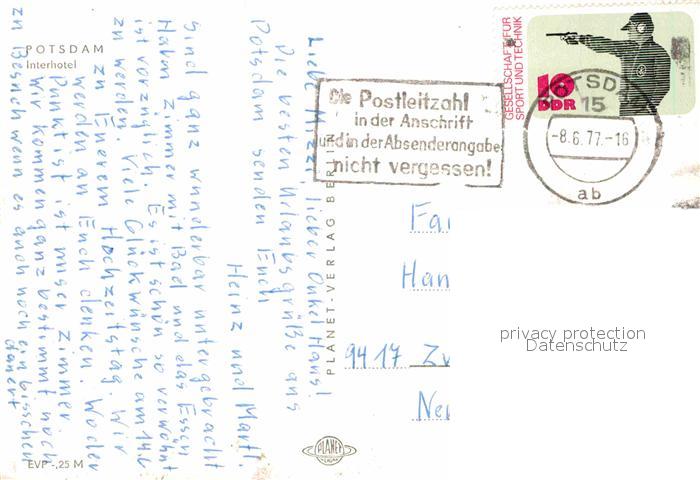 POTSDAM
Interhotel
Liebe Mitzi, lieber Onkel Hans!
Die besten Urlaubsgrüße aus
Potsdam senden Euch
Heinz und Marl.
Sind ganz wunderbar untergebracht
Haben Zimmer mit Bad und das Essen
ist vorzüglich. Es ist schön so verwöhnt
zu werden. Viele Glückwünsche am 14.6
zu Euerem Hochzeitstag. Wir
werden an Euch denken. Wo der
Punkt ist unser Zimmer.
Wir kommen ganz bestimmt nach
zu Besuch wenn es auch noch ein bisschen
dauert
EVP -,25 M
PLANET-VERLAG BERLIN
PLANET
VERLAG
Die Postleitzahl
in der Anschrift
und in der Absenderangabe
nicht vergessen!
GESELLSCHAFT FÜR
SPORT UND TECHNIK
10
DDR
POTSDAM
15
-8.6.77.-16
ab
Fa
Han
9417 Zw
Neu
privacy protection
Datenschutz